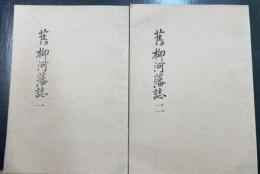 舊柳河藩誌 一
舊柳河藩誌 二